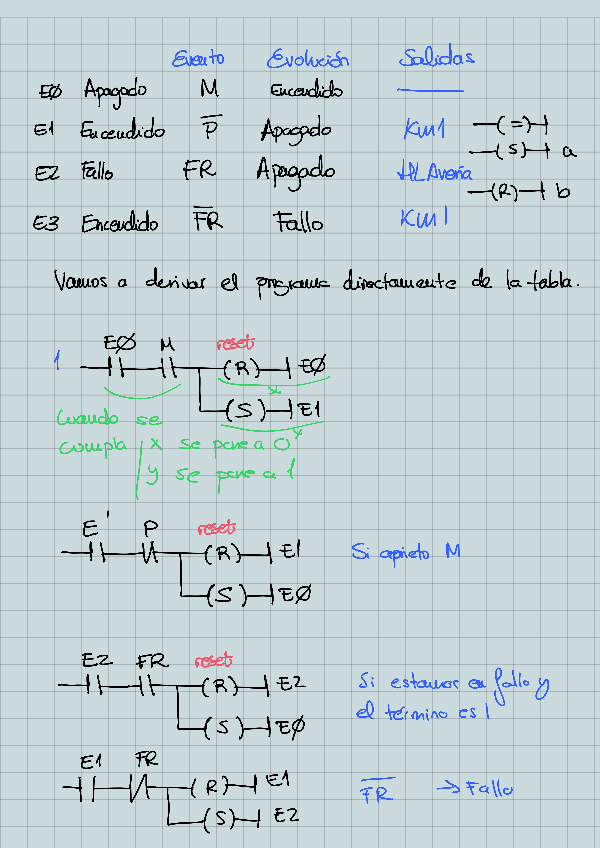 Evento Evolución Salidas
EØ Apagado M Encendido
E1 Encendido P̅ Apagado KM1 (=)
(S) a
E2 Fallo FR Apagado HL Avería
(R) b
E3 Encendido F̅R̅ Fallo KM1
Vamos a derivar el programa directamente de la tabla.
EØ M reset
1 (R) EØ
x
(S) E1
Cuando se
cumpla x se pone a 0
y se pone a 1
E' P reset
(R) E1 Si aprieto M
(S) EØ
E2 FR reset
(R) E2 Si estamos en fallo y
(S) EØ el término es 1
E1 FR
(R) E1 F̅R̅ → Fallo
(S) E2